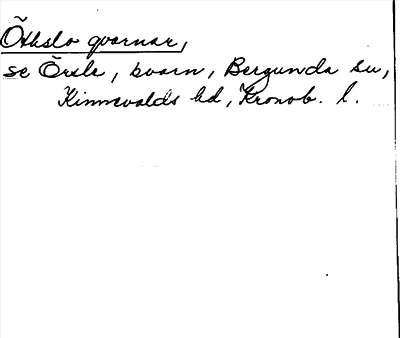 Õxlslo qvarnar,
se Õrsle, kvarn, Bergunda sn,
Kinnevalds hd, Kronob. l.